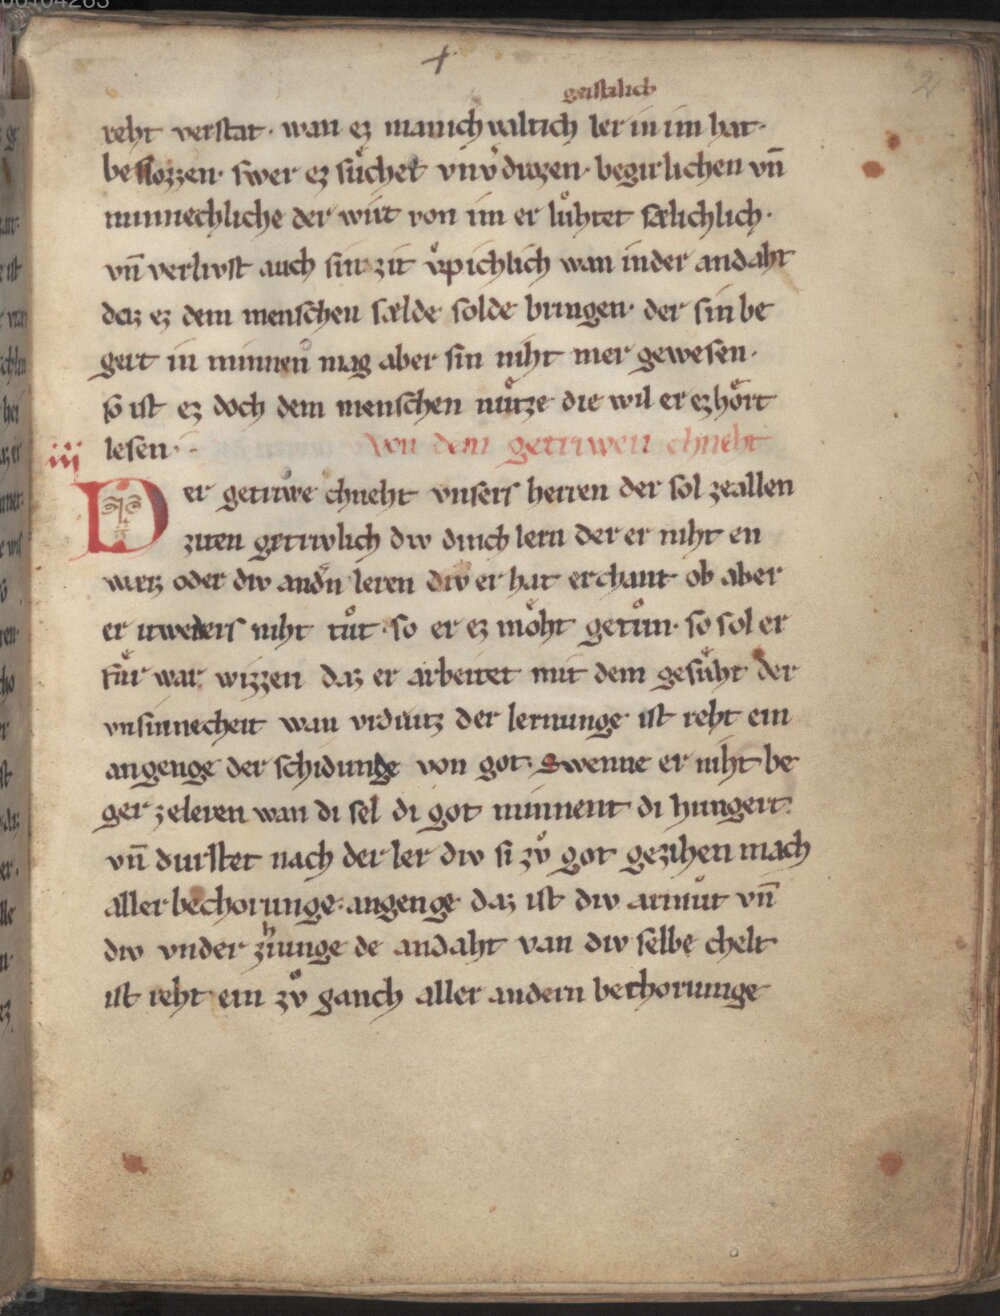 +
geistelich
reht verstat · wan ez manichvaltich ler in im hat ·
beslozzen · swer ez suͦchet vnv̓drozen · begirlichen vn̄
minnechliche der wirt von im er luͤhtet sælichlich ·
vn̄ verlivst auch sin zit v̓pichlich wan in der andaht
daz ez dem menschen sælde solde bringen · der sin be
gert in minnen mag aber sin niht mer gewesen ·
so ist ez doch dem menschen nuͤtze die wil er ez hoͤrt
lesen · Von dem getriwen chneht
iij
Der getriwe chneht vnsers herren der sol ze allen
ziten getriwlich div dinch lern der er niht en
waiz oder div andn̄ leren div er hat erchant ob aber
er itweders niht tuͦt · so er ez moͤht getuͦn · so sol er
fuͤr war wizzen daz er arbeitet mit dem gesuͤht der
vnsinnecheit wan vrdrutz der lernunge ist reht ein
angenge der schidunge von got · Swenne er niht be
ger ze leren wan di sel di got minnent di hungert
vn̄ durstet nach der ler div si zuͦ got gezihen mach
aller bechorunge · angenge daz ist div armuͦt vn̄
div vnder zihunge de andaht van div selbe chelt
ist reht ein zuͦ ganch aller andern bechorunge